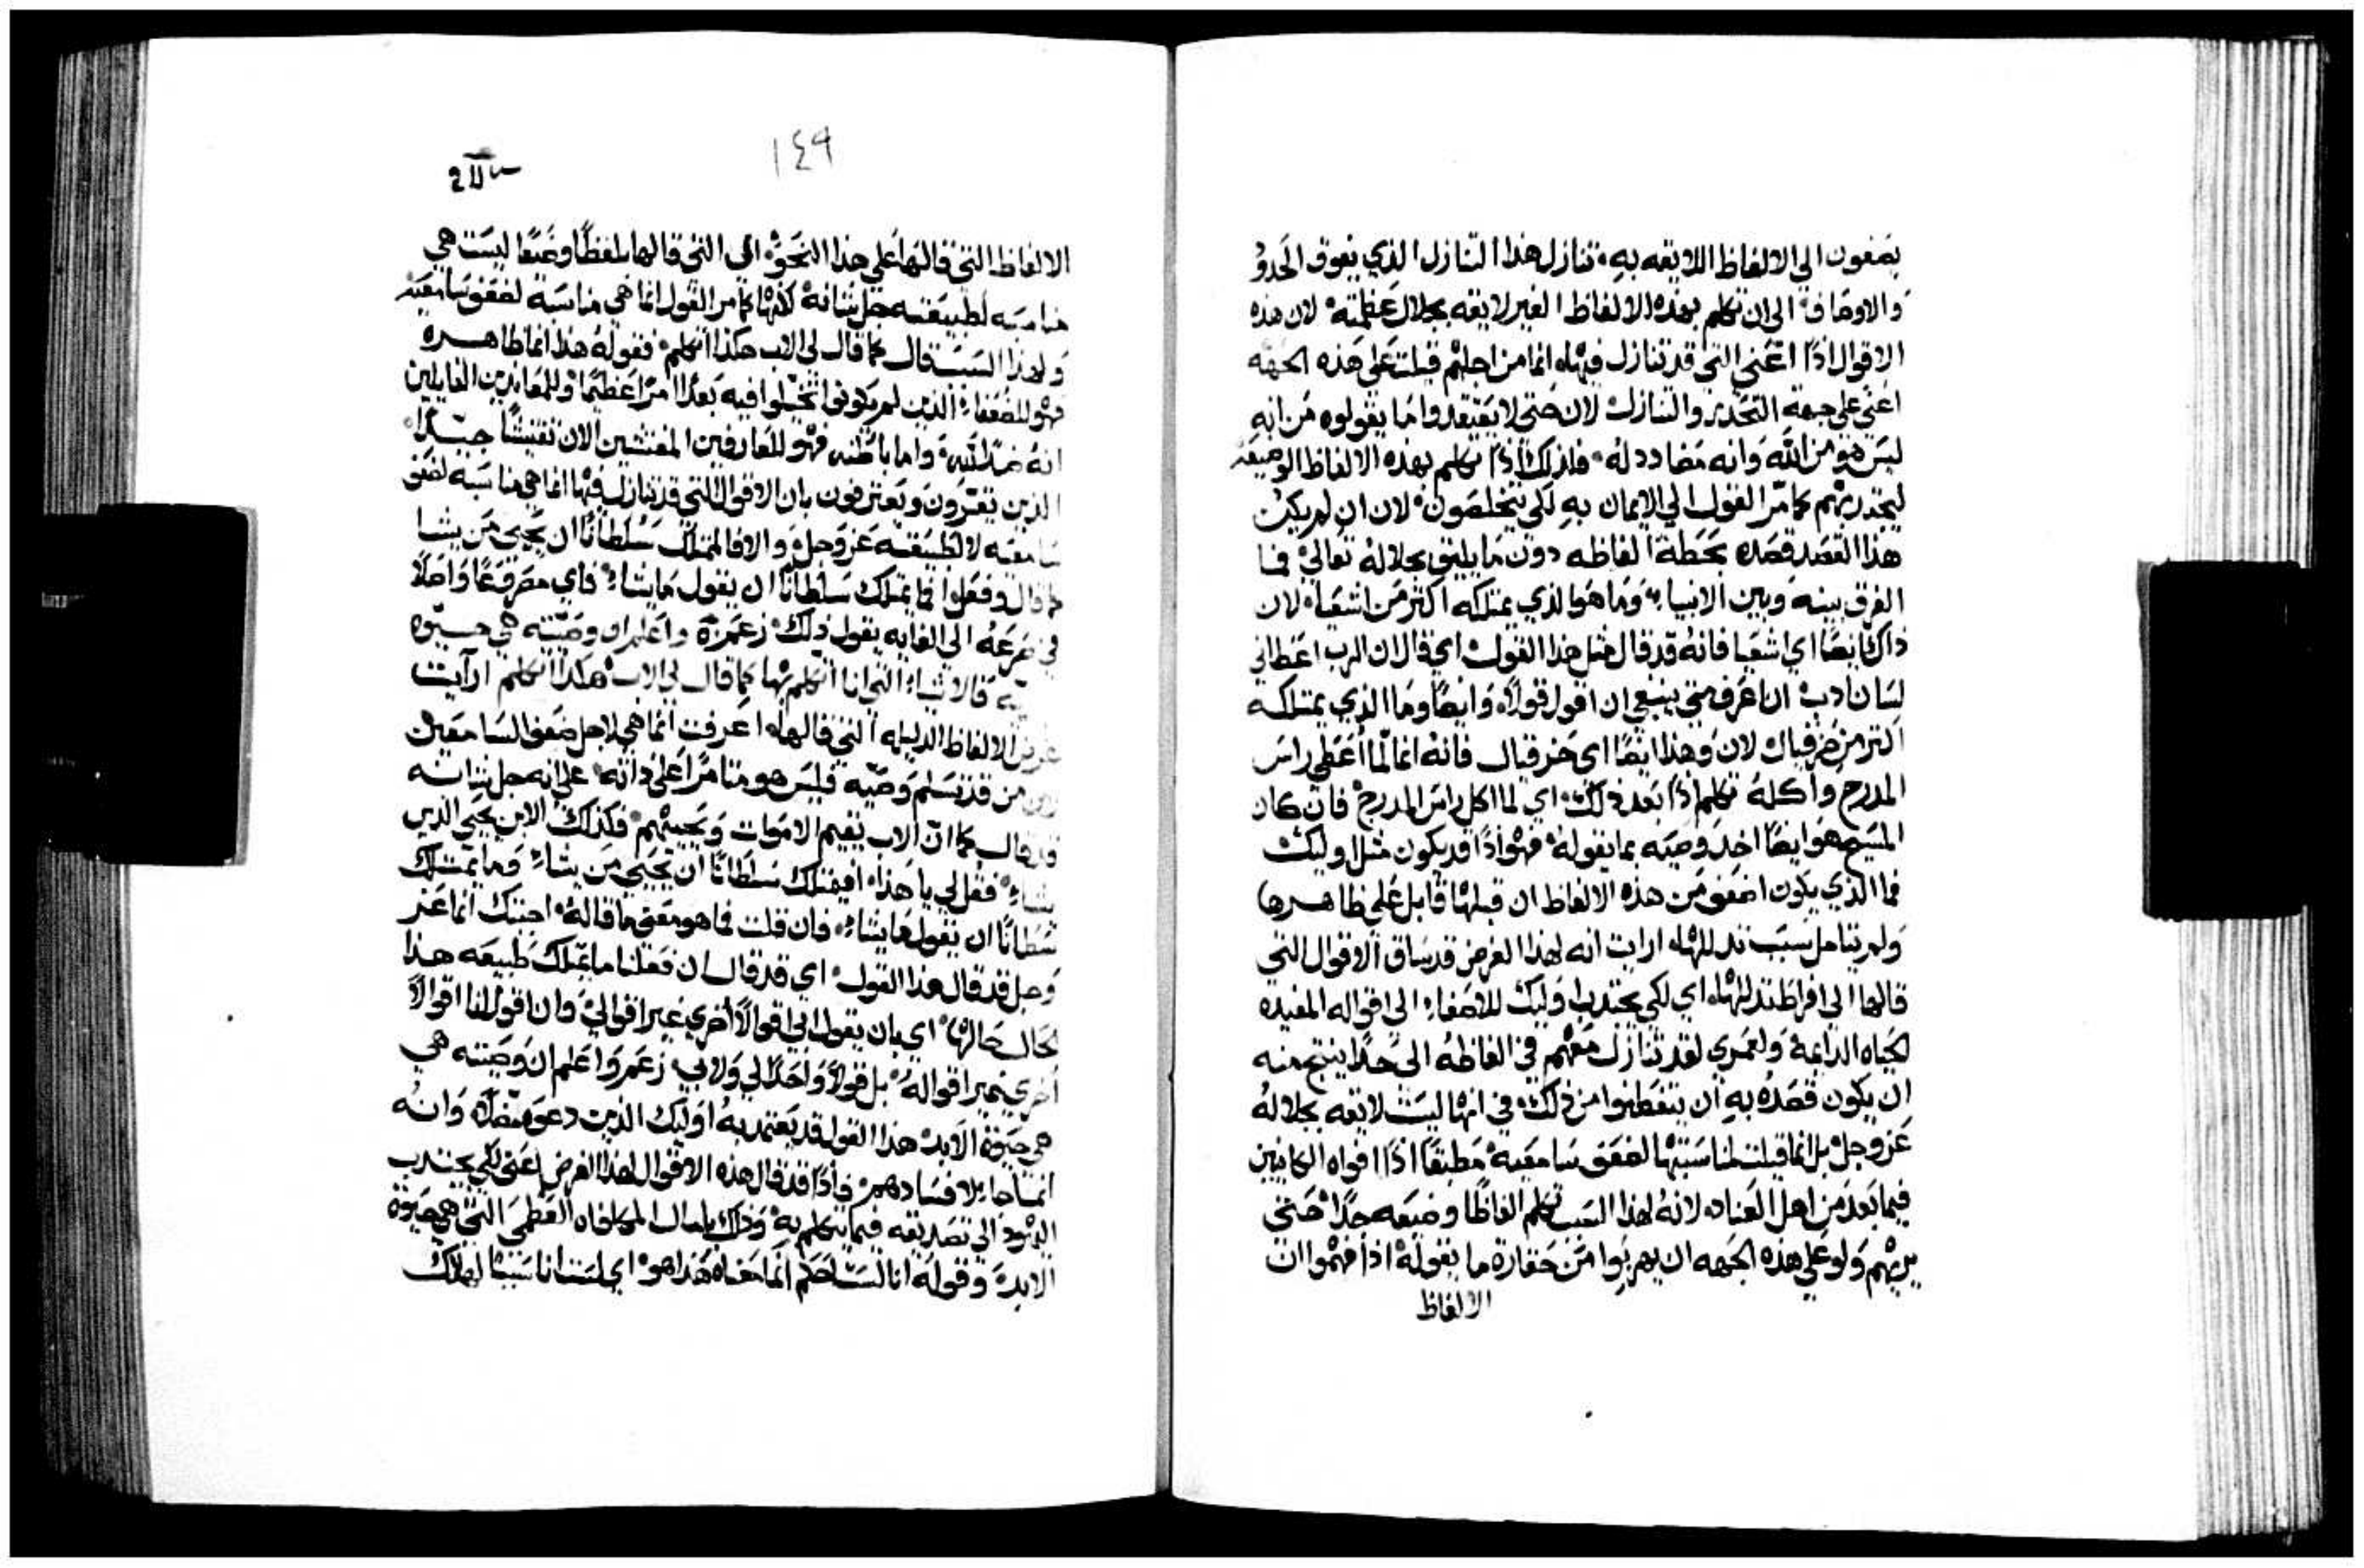 يصغون الي الالفاظ اللايقه به، تنازل هذا التنازل الذي يفوق الحدود
والاوصاف الي ان تكلم بهذه الالفاظ الغير لايقه بجلال عظمته لان هذه
الاقوال اذًا اعني التي قد تنازل فيها، انما من اجلهم قيلت علي هذه الجهه
اعني علي جهة التحذير والتنازل لان حتي لا يعتقدوا ما يقولوه من انه
ليس هو من الله وانه مضادد له، فلذلك اذًا تكلم بهذه الالفاظ الوضيعه
ليجذبهم كما مرّ القول الي الايمان به لكي يتخلصون، لان ان لم يكن
هذا القصد قصده بحطة الفاظه دون ما يليق بجلاله تعالي فما
الفرق بينه وبين الانبياء، وما هو الذي يمتلكه اكثر من اشعيا، لان
ذاك ايضًا اي اشعيا فانه قد قال مثل هذا القول اي قال ان الرب اعطاني
لسان ادب ان اعرف متي ينبغي ان اقول قولًا، وايضًا وما الذي يمتلكه
اكثر من حزقيال لان وهذا ايضًا اي حزقيال فانه انما لمّا اُعطي راس
المدرج واكله تكلم اذًا بعد ذلك، اي لما اكل راس المدرج فان كان
المسيح هو ايضًا اخذ وصيه بما يقوله، فهو اذًا قد يكون مثل اوليك
فما الذي يكون اضعف من هذه الالفاظ ان قبلها قابل علي ظاهرها
ولم يتامل سبب تذللها، ارايت انه لهذا الغرض قد ساق الاقوال التي
قالها الي افراط تذللها، اي لكي يجتذب اوليك للاصغاء الي اقواله المفيده
لحياه الدايمة ولعمري لقد تنازل معهم في الفاظه الي حدًا ينتج منه
ان يكون قصده به ان يتفطنوا من ذلك، في انها ليست لايقه بجلاله
عز وجل بل انما قيلت لمناسبتها لضعف سامعيه مطبقًا اذًا افواه الكاينين
فيما بعد من اهل العناد، لانه لهذا السبب تكلم الفاظًا وضيعه جدًا حتي
يربيهم ولو علي هذه الجهه ان يهربوا من حقارة ما يقوله اذا فهموا ان
الالفاظ
١٤٩
الالفاظ التي قالها علي هذا النحو، اي التي قالها بلفظًا وضيعًا ليست هي
مناسبه لطبيعته جل شانه لكنها كما مر القول انما هي مناسبة لضعف سامعيه
ولهذا السبب قال كما قال لي الاب هكذا اتكلم، فقوله هذا انما ظاهره
فهو للضعفاء الذين لم يكونوا تخيّلوا فيه بعدًا امرًا عظيمًا وللمعاندين القايلين
انه ضدًا لله، واما باطنه فهو للعارفين المفتشين الان تفتيشًا جيّدًا،
الذين يقرّون ويعترفون بان الاقوال التي قد تنازل فيها انما هي مناسبه لضعف
سامعيه لا لطبيعته عز وجل، والا فالمتملك سلطانًا ان يحيي من يشا
قال وفعل، اما يمتلك سلطانًا ان يقول ما يشاء، فاي مصرفعًا واصلًا
في ضرعه الي الغايه يقول ذلك، زعم واعلم ان وصيّته هي حيوه
فالاشياء التي انا اتكلم بها كما قال لي الاب هكذا اتكلم ارايت
غرض الالفاظ الذليله التي قالها، اعرفت انما هي لاجل ضعف السامعين
من قد تسلم وصيه فليس هو متامرًا علي ذاته، علي انه جل شانه
قد قال كما انّ الاب يقيم الاموات ويحييهم، فكذلك الابن يحيي الذين
يشاء، فقل لي يا هذا، افيمتلك سلطانًا ان يحيي من يشاء وما يمتلك
سلطانًا ان يقول ما يشاء، فان قلت فما هو معني ما قاله، اجبتك انما عز
وجل قد قال هذا القول، اي قد قال ان فعلنا ما يمتلك طبيعه هذا
الحال حالها، اي بان يقول ابي اقوالًا اخري غير اقوالي، وان اقول انا اقوالًا
اخري غير اقواله، بل قولًا واحدًا لي ولابي، زعم واعلم ان وصيته هي
هي حيوة الابد، هذا القول قد يعتمد به اوليك الذين دعوه مضلًا، وانه
انما جا لافسادهم، فاذًا قد قال هذه الاقوال لهذا الغرض اعني لكي يجتذب
اليهود الي تصديقه فيما يتكلم به، وذلك بامال المكافاه العظمي التي هي حيوة
الابد، وقوله انا لست احكم انما معناه هذا هو، اي لست انا سببًا لهلاك